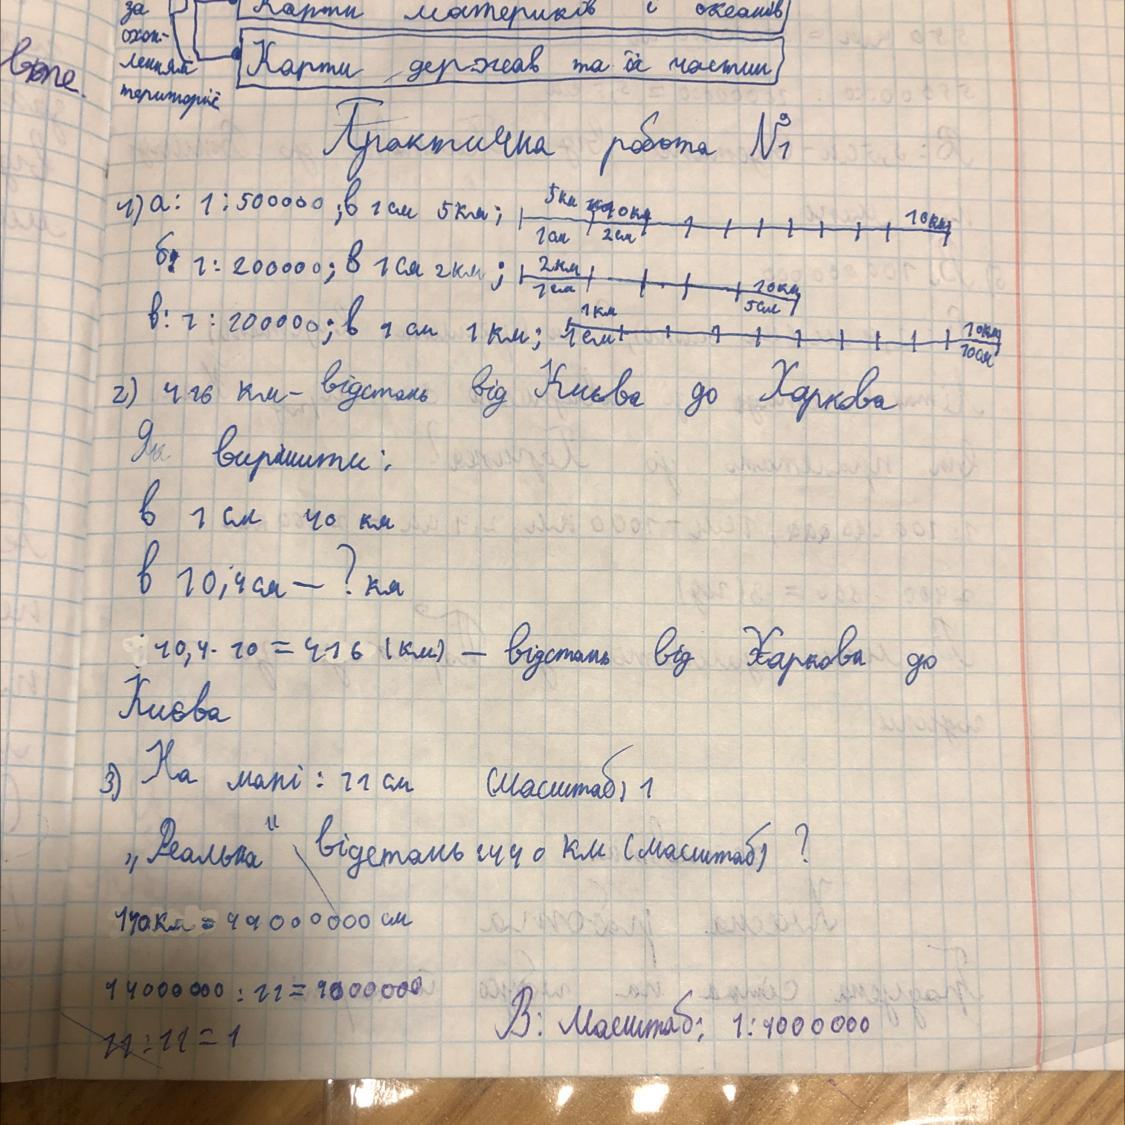 за
охоп-
ленням
територiї
Карти материків і океанів
Карти держав та їх частин
Практична робота №1
1) а: 1:500000; в 1 см 5 км; 5км 10км 10км
1см 2см
б: 1:200000; в 1 см 2 км; 2км 10км
1см 5см
в: 1:100000; в 1 см 1 км; 1км 10км
1см 10см
2) 416 км - відстань від Києва до Харкова
Як вирішити:
в 1 см 40 км
в 10,4 см — ? км
10,4 · 40 = 416 (км) — відстань від Харкова до
Києва
3) На мапі: 11 см (Масштаб) 1
„Реальна" відстань 440 км (масштаб) ?
440км = 44000000 см
44000000 : 11 = 4000000
11 : 11 = 1
В: Масштаб: 1:4000000